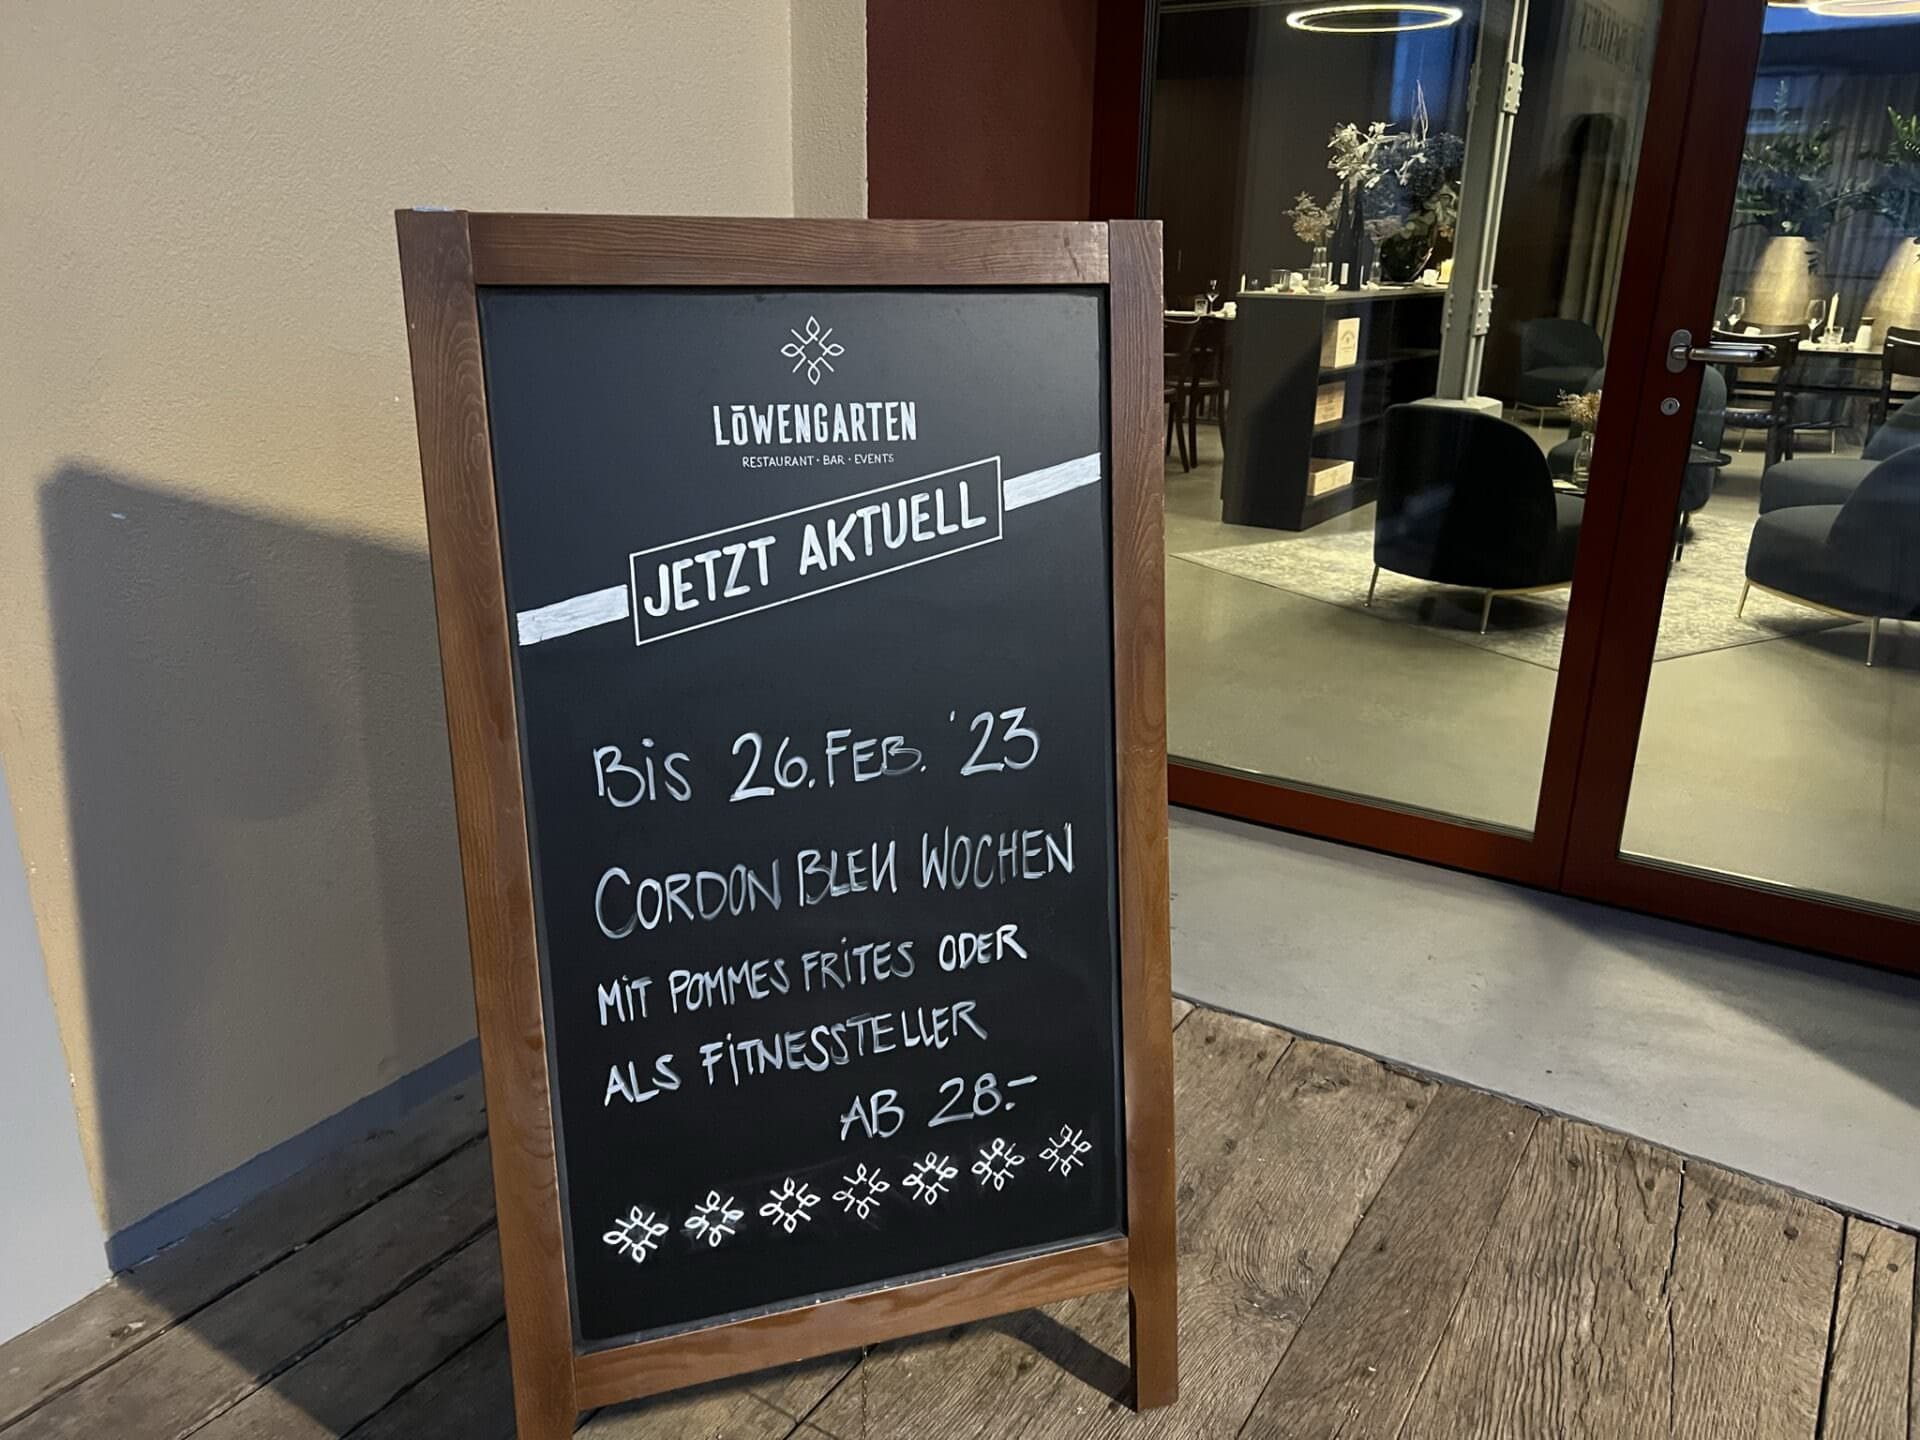 LŌWENGARTEN
RESTAURANT · BAR · EVENTS
JETZT AKTUELL
BiS 26. FEB. '23
CORDON BLEU WOCHEN
MiT POMMES FRiTES ODER
ALS FiTNESSTELLER
AB 28.-